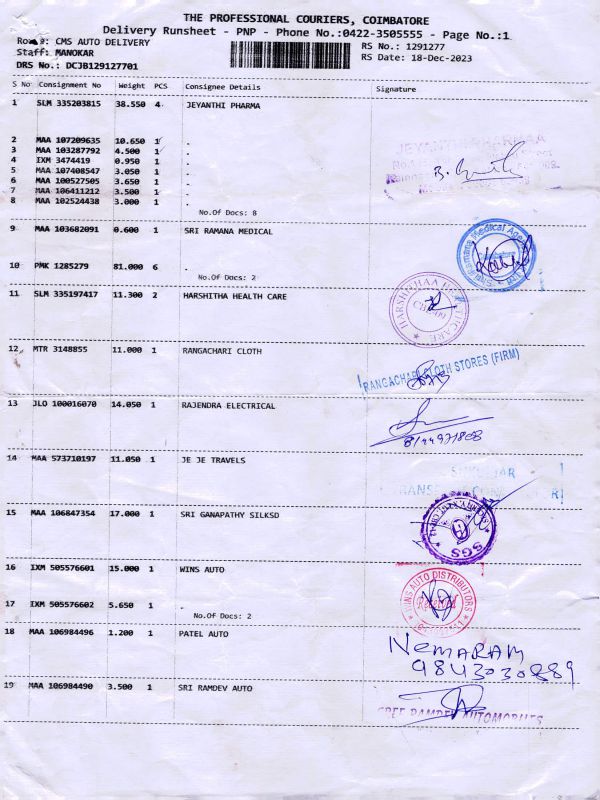 THE PROFESSIONAL COURIERS, COIMBATORE
Delivery Runsheet - PNP - Phone No.:0422-3505555 - Page No.:1
Route: CMS AUTO DELIVERY RS No.: 1291277
Staff: MANOKAR RS Date: 18-Dec-2023
DRS No.: DCJB129127701
S No Consignment No Weight PCS Consignee Details Signature
1 SLM 335203815 38.550 4 JEYANTHI PHARMA
2 MAA 107209635 10.650 1 .
3 MAA 103287792 4.500 1 .
4 IXM 3474419 0.950 1 .
5 MAA 107408547 3.050 1 .
6 MAA 100527505 3.650 1 .
7 MAA 106411212 3.500 1 .
8 MAA 102524438 3.000 1 .
No.Of Docs: 8
9 MAA 103682091 0.600 1 SRI RAMANA MEDICAL
10 PMK 1285279 81.000 6 .
No.Of Docs: 2
11 SLM 335197417 11.300 2 HARSHITHA HEALTH CARE
12 MTR 3148855 11.000 1 RANGACHARI CLOTH
RANGACHARI CLOTH STORES (FIRM)
13 JLO 100016070 14.050 1 RAJENDRA ELECTRICAL
14 MAA 573710197 11.050 1 JE JE TRAVELS
15 MAA 106847354 17.000 1 SRI GANAPATHY SILKSD
SGS
16 IXM 505576601 15.000 1 WINS AUTO
WINS AUTO DISTRIBUTORS
Received
17 IXM 505576602 5.650 1 .
No.Of Docs: 2
18 MAA 106984496 1.200 1 PATEL AUTO
NEMARAM
9843030889
19 MAA 106984490 3.500 1 SRI RAMDEV AUTO
SREE RAMDEV AUTOMOBILES